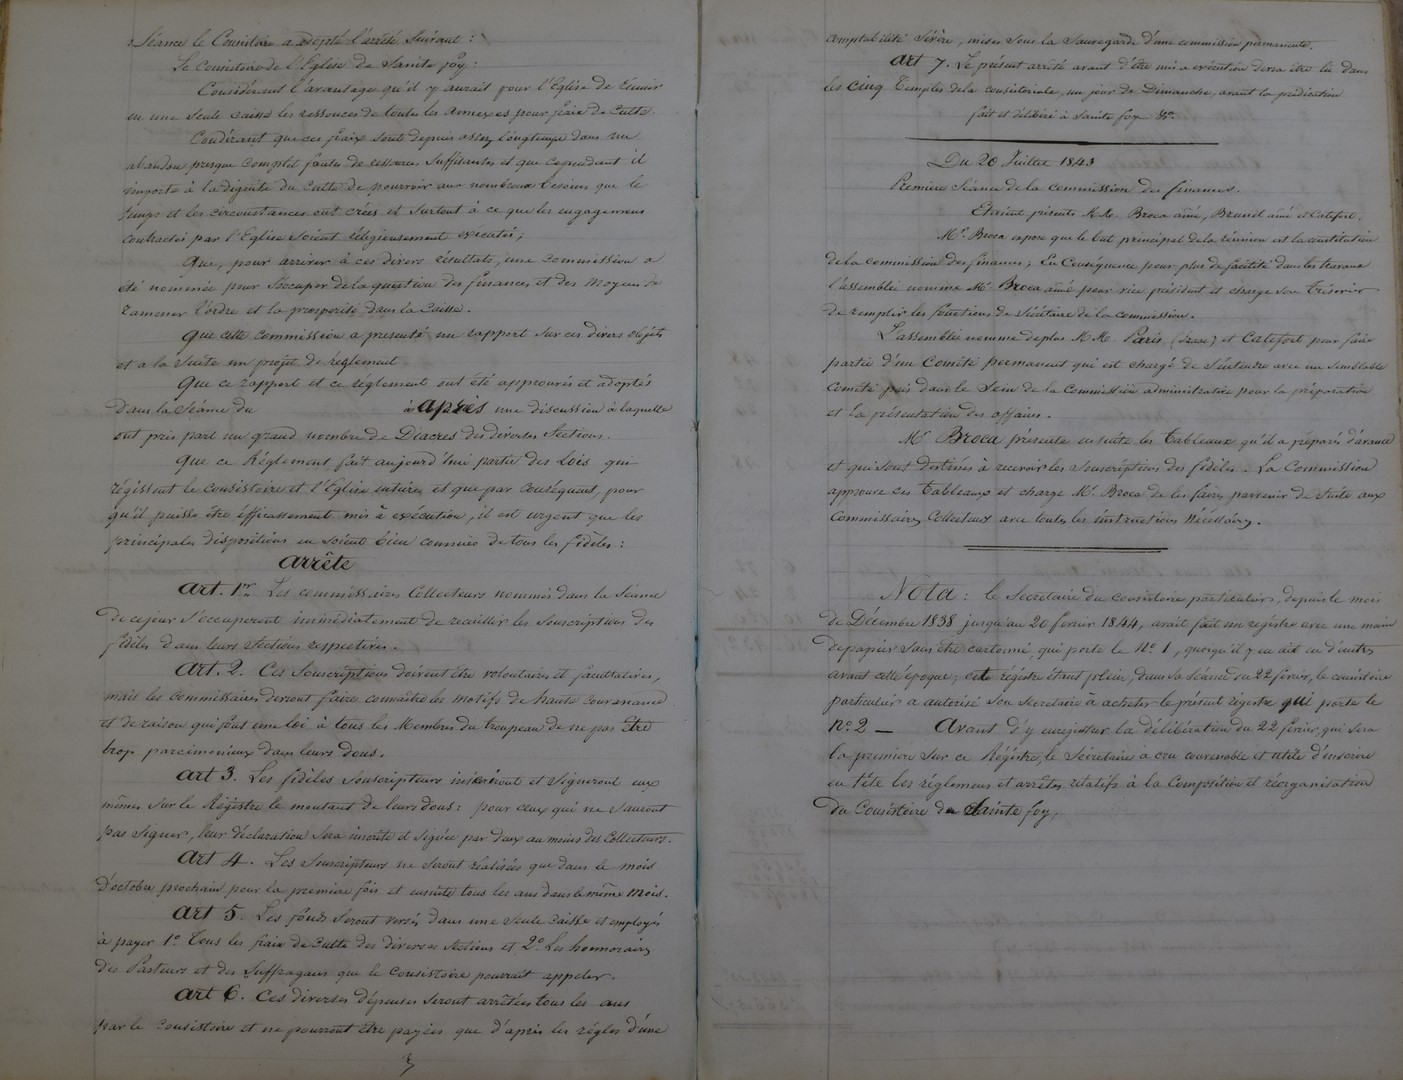 Séance le Consistoire a adopté l'arrêté Suivant :
Le Consistoire de l'Eglise de Sainte foy :
Considérant l'avantage qu'il y aurait pour l'Eglise de Réunir
en une Seule caisse les ressources de toutes les annexes pour frais de Culte.
Considérant que ces frais sont depuis assez longtemps dans un
abandon presque complet fautes de ressources Suffisantes et que cependant il
importe à la dignité du Culte de pourvoir aux nombreux besoins que le
temps et les circonstances ont crées et Surtout à ce que les engagemens
contractés par l'Eglise Soient réligieusement exécutés ;
Que, pour arriver à ces divers résultats, une Commission a
été nommée pour S'occuper de la question des finances et des moyens de
ramener l'ordre et la prosperité dans la Caisse.
Que cette Commission a présenté un rapport sur ces divers objets
et a la Suite un projet de reglement
Que ce rapport et ce réglement ont été approuvés et adoptés
Dans la Séance du à après une discussion à laquelle
ont pris part un grand nombre de Diacres des diverses Sections.
Que ce Réglement fait aujourd'hui partie des Lois qui
régissent le consistoire et l'Eglise entière et que par Conséquent, pour
qu'il puisse être éfficassement mis à exécution, il est urgent que les
principales dispositions en soient bien connues de tous les fidèles :
arrête
art. 1er Les commissaires Collecteurs nommés dans la Séance
de ce jour s'occuperont immédiatement de recueillir les Souscriptions des
fidèles dans leurs Sections respectives.
art. 2. Ces Souscriptions doivent être volontaires et facultatives,
mais les Commissaires devront faire connaître les motifs de haute convenance
et de raison qui font une loi à tous les Membres du troupeau de ne pas être
trop parcimonieux dans leurs dons.
art 3. Les fidèles Souscripteurs inscriront et Signeront eux
mêmes sur le Régistre le montant de leurs dons : pour ceux qui ne sauront
pas signer, leur déclaration sera inscrite et signée par deux au moins des Collecteurs.
art 4. Les Souscripteurs ne seront réalisées que dans le mois
d'octobre prochain pour la premiere fois et ensuite tous les ans dans le même mois.
art 5. Les fonds Seront versés dans une seule Caisse et employés
à payer 1° Tous les frais de Culte des diverses Sections et 2° Les honnoraires
des Pasteurs et des Suffragans que le Consistoire pourrait appeler.
art 6. Ces diverses dépenses seront arrêtées tous les ans
par le consistoire et ne pourront être payées que d'après les régles d'une
comptabilité Sévère, mises sous la Sauvegarde d'une commission permanente.
art 7. Le présent arrêté avant d'être mis a exécution devra être lu dans
les cinq Temples de la consistoriale, un jour de Dimanche, avant la prédication
fait et délibéré à Sainte foy &c.
Du 20 Juillet 1843
Premiere Séance de la commission des finances.
Etaient présents M.M. Broca aîné, Brunet aîné et Catefort.
Mr. Broca expose que le but principal de la réunion est la constitution
de la commission des finances ; En Conséquence pour plus de facilité dans les travaux
l'assemblée nomme Mr Broca aîné pour vice président et charge son Trésorier
de remplir les fonctions de Sécrétaire de la commission.
L'assemblée nomme de plus M.M. Paris et Catefort pour faire
partie d'un Comité permanent qui est chargé de S'entendre avec un Semblable
Comité pris dans le Sein de la Commission administrative pour la préparation
et la présentation des affaires.
Mr Broca présente ensuite les Tableaux qu'il a préparés d'avance
et qui sont destinés à recevoir les Souscriptions des fidèles. La Commission
approuve ces Tableaux et charge Mr Broca de les faire parvenir de Suite aux
Commissaires Collecteurs avec toutes les instructions nécessaires.
Nota : le Secretaire du consistoire particulier, depuis le mois
de Décembre 1838 jusqu'au 20 fevrier 1844, avait fait un registre avec une main
de papier sans être cartonné, qui porte le N° 1, quoiqu'il y en ait eu d'autres
avant cette époque ; cet régistre étant plein, dans sa séance du 22 février, le consistoire
particulier a autorisé son Secretaire à acheter le présent régistre qui porte le
N° 2 — Avant d'y enregistrer la déliberation du 22 fevrier, qui sera
la premiere sur ce Régistre, le Sécrétaire a cru convenable et utile d'inscrire
en tête les réglemens et arrêtés rélatifs à la Composition et réorganisation
du Consistoire de Sainte foy,